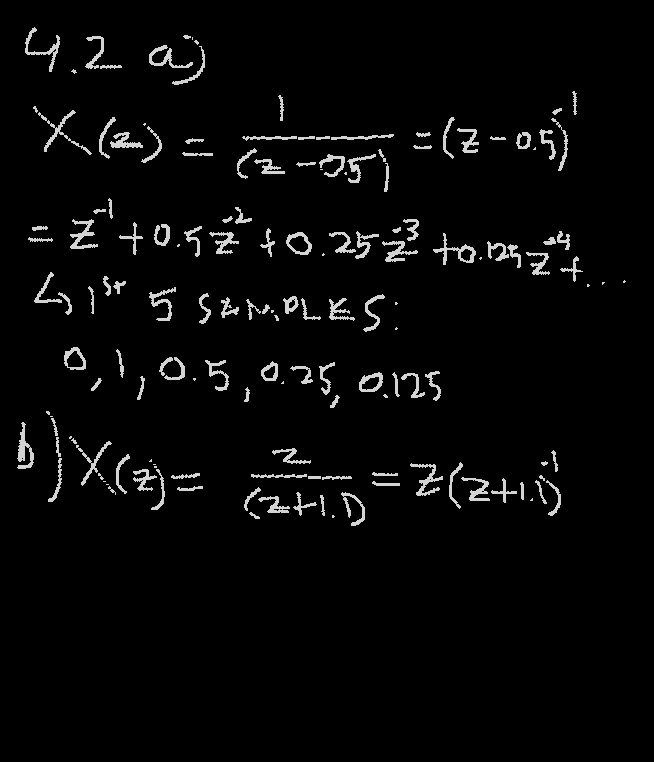 4.2 a)
X(z) = 1/(z-0.5) = (z-0.5)^-1
= z^-1 + 0.5z^-2 + 0.25z^-3 + 0.125z^-4 + ...
↳ 1st 5 SAMPLES:
0, 1, 0.5, 0.25, 0.125
b) X(z) = z/(z+1.1) = z(z+1.1)^-1